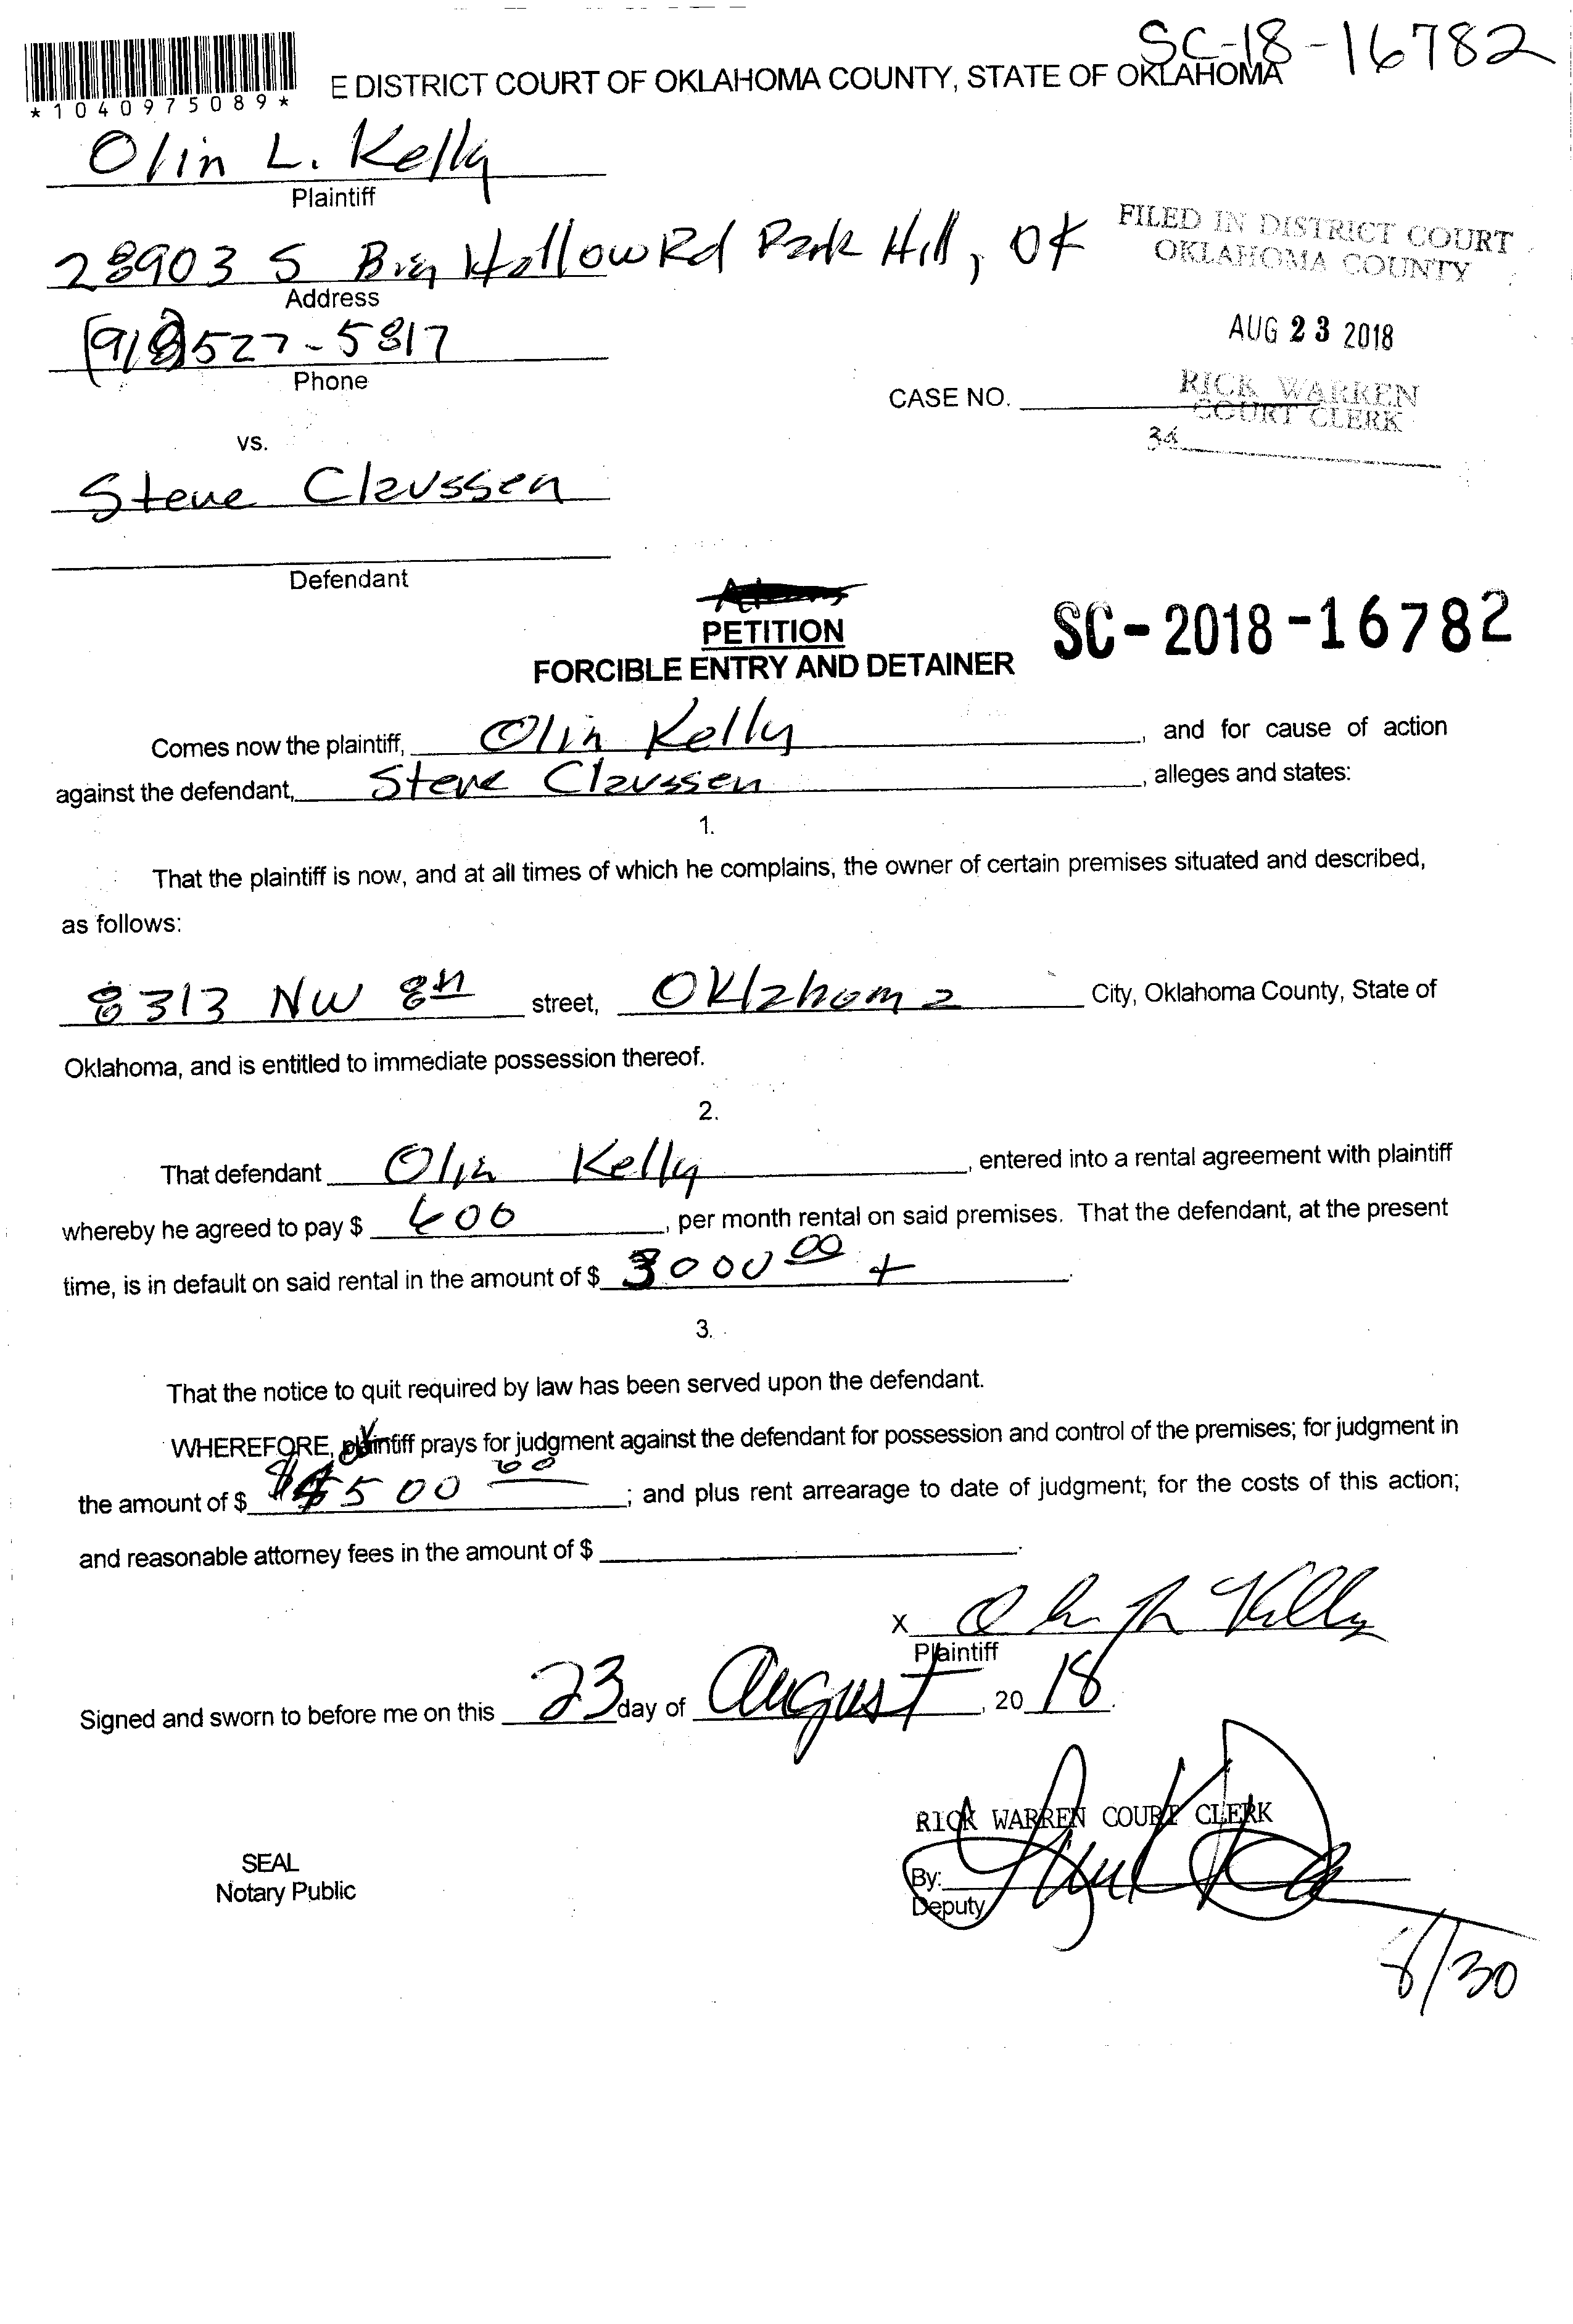 SC-18-16782
*1040975089*
E DISTRICT COURT OF OKLAHOMA COUNTY, STATE OF OKLAHOMA
Olin L. Kelly
Plaintiff
28903 S Big Hollow Rd Park Hill, OK
Address
(918)527-5817
Phone
FILED IN DISTRICT COURT
OKLAHOMA COUNTY
AUG 23 2018
RICK WARREN
COURT CLERK
34
CASE NO.
vs.
Steve Claussen
Defendant
PETITION
FORCIBLE ENTRY AND DETAINER
SC-2018-16782
Comes now the plaintiff, Olin Kelly, and for cause of action
against the defendant, Steve Claussen, alleges and states:
1.
That the plaintiff is now, and at all times of which he complains, the owner of certain premises situated and described,
as follows:
8313 NW 8th street, Oklahoma City, Oklahoma County, State of
Oklahoma, and is entitled to immediate possession thereof.
2.
That defendant Olin Kelly, entered into a rental agreement with plaintiff
whereby he agreed to pay $ 600, per month rental on said premises. That the defendant, at the present
time, is in default on said rental in the amount of $ 3000 00 +.
3.
That the notice to quit required by law has been served upon the defendant.
WHEREFORE, plaintiff prays for judgment against the defendant for possession and control of the premises; for judgment in
the amount of $ 500 00; and plus rent arrearage to date of judgment; for the costs of this action;
and reasonable attorney fees in the amount of $ .
X Olin L Kelly
Plaintiff
Signed and sworn to before me on this 23 day of August, 2018.
RICK WARREN COURT CLERK
SEAL
Notary Public
By:
Deputy
8/30